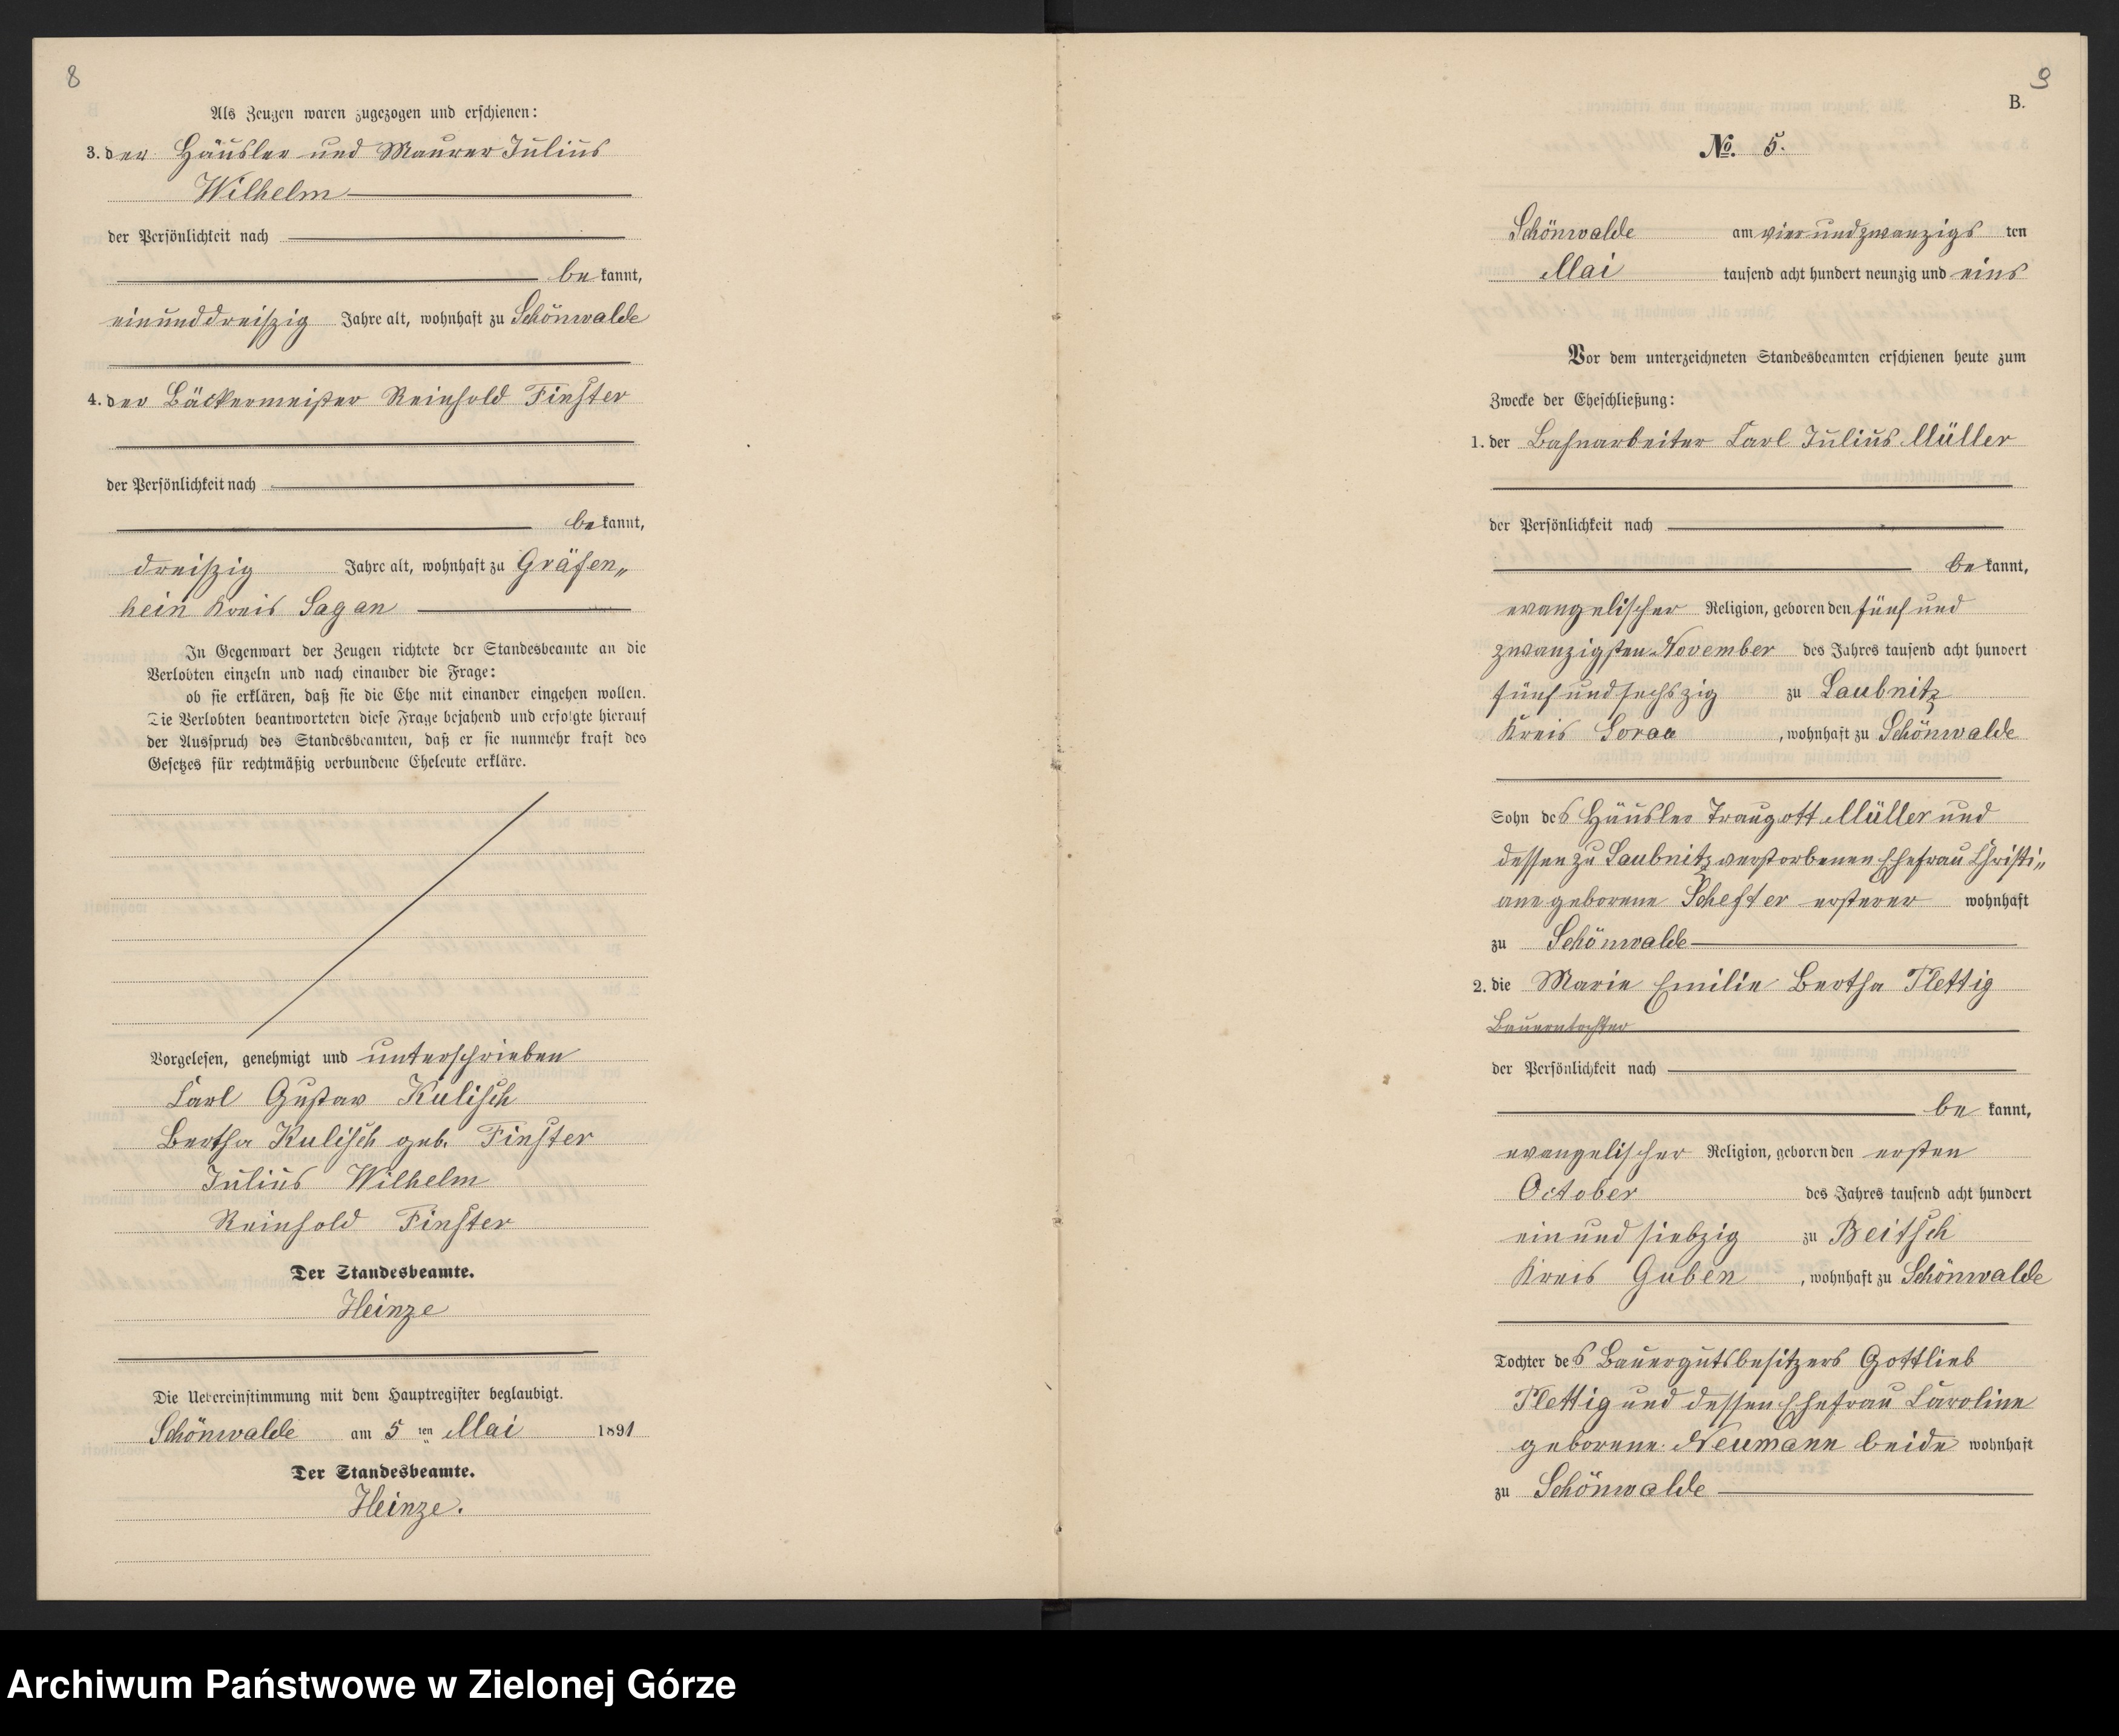 8
Als Zeugen waren zugezogen und erschienen:
3. der Häusler und Maurer Julius
Wilhelm
der Persönlichkeit nach
be kannt,
einunddreißig Jahre alt, wohnhaft zu Schönwalde
4. der Bäckermeister Reinhold Finster
der Persönlichkeit nach
be kannt,
dreißig Jahre alt, wohnhaft zu Gräfen„
hein Kreis Sagan
In Gegenwart der Zeugen richtete der Standesbeamte an die
Verlobten einzeln und nach einander die Frage:
ob sie erklären, daß sie die Ehe mit einander eingehen wollen.
Die Verlobten beantworteten diese Frage bejahend und erfolgte hierauf
der Ausspruch des Standesbeamten, daß er sie nunmehr kraft des
Gesetzes für rechtmäßig verbundene Eheleute erkläre.
Vorgelesen, genehmigt und unterschrieben
Carl Gustav Kulisch
Bertha Kulisch geb. Finster
Julius Wilhelm
Reinhold Finster
Der Standesbeamte.
Heinze
Die Uebereinstimmung mit dem Hauptregister beglaubigt.
Schönwalde am 5 ten Mai 1891
Der Standesbeamte.
Heinze.
9
B.
No. 5.
Schönwalde am vierundzwanzigs ten
Mai tausend acht hundert neunzig und eins
Vor dem unterzeichneten Standesbeamten erschienen heute zum
Zwecke der Eheschließung:
1. der Bahnarbeiter Carl Julius Müller
der Persönlichkeit nach
be kannt,
evangelischer Religion, geboren den fünf und
zwanzigsten November des Jahres tausend acht hundert
fünf und sechszig zu Laubnitz
Kreis Sorau , wohnhaft zu Schönwalde
Sohn des Häusler Traugott Müller und
dessen zu Laubnitz verstorbenen Ehefrau Christi„
ane geborene Schefter ersterer wohnhaft
zu Schönwalde
2. die Marie Emilie Bertha Plettig
Bauerntochter
der Persönlichkeit nach
be kannt,
evangelischer Religion, geboren den ersten
October des Jahres tausend acht hundert
ein und siebzig zu Beitsch
Kreis Guben , wohnhaft zu Schönwalde
Tochter des Bauergutsbesitzers Gottlieb
Plettig und dessen Ehefrau Caroline
geborene Neumann beide wohnhaft
zu Schönwalde
Archiwum Państwowe w Zielonej Górze